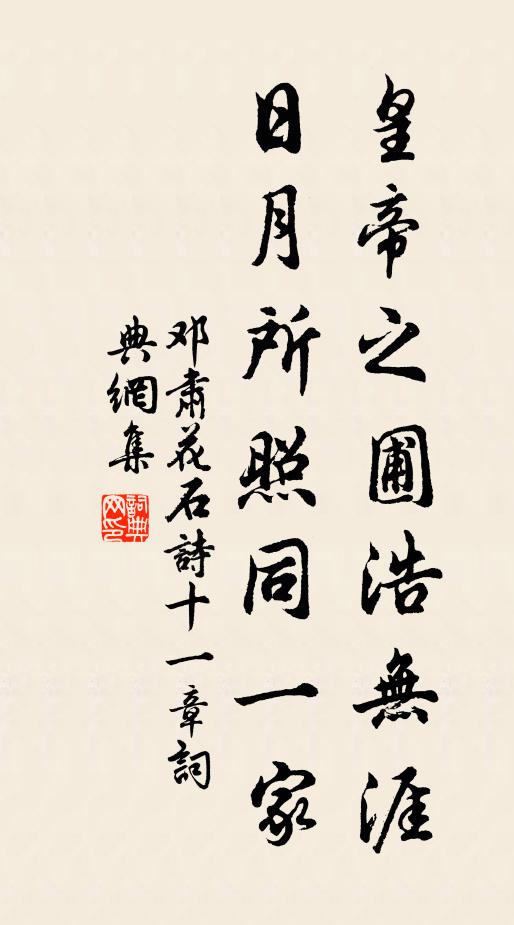 皇帝之圃浩無涯
日月所照同一家
邓肅花石詩十一章詞
典網集
詞典网印